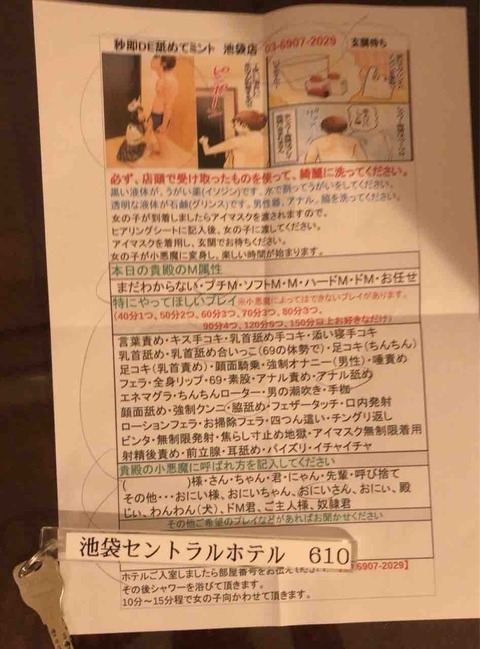 秒即DE舐めてミント 池袋店 03-6907-2029 玄関待ち
必ず、店頭で受け取ったものを使って、綺麗に洗ってください。
黒い液体が、うがい薬(イソジン)です。水で割ってうがいをしてください。
透明な液体が石鹸(グリンス)です。男性器、アナル、脇を洗ってください。
女の子が到着しましたらアイマスクを渡されますので。
ヒアリングシートに記入後、女の子に渡してください。
アイマスクを着用し、玄関でお待ちください。
女の子が小悪魔に変身し、楽しい時間が始まります。
本日の貴殿のM属性
まだわからない・プチM・ソフトM・M・ハードM・ドM・お任せ
特にやってほしいプレイ ※小悪魔によってはできないプレイがあります。
(40分1つ、50分2つ、60分3つ、70分3つ、80分3つ、
90分4つ、120分5つ、150分以上お好きなだけ)
言葉責め・キス手コキ・乳首舐め手コキ・添い寝手コキ
乳首舐め・乳首舐め合いっこ(69の体勢で)・足コキ(ちんちん)
足コキ(乳首責め)・顔面騎乗・強制オナニー(男性)・唾責め
フェラ・全身リップ・69・素股・アナル責め・アナル舐め
エネマグラ・ちんちんローター・男の潮吹き・手枷
顔面舐め・強制クンニ・脇舐め・フェザータッチ・口内発射
ローションフェラ・お掃除フェラ・四つん這い・チングリ返し
ビンタ・無制限発射・焦らし寸止め地獄・アイマスク無制限着用
射精後責め・前立腺・耳舐め・パイズリ・イチャイチャ
貴殿の小悪魔に呼ばれ方を記入してください
( )様・さん・ちゃん・君・にゃん・先輩・呼び捨て
その他・・・おにい様、おにいちゃん、おにいさん、おにぃ、殿
じぃ、わんわん(犬)、ドM君、ご主人様、奴隷君
その他ご希望のプレイなどがあればお聞かせください
池袋セントラルホテル 610
ホテルご入室しましたら部屋番号をお伝え
6907-2029】
その後シャワーを浴びて頂きます。
10分～15分程で女の子向かわせて頂きます。